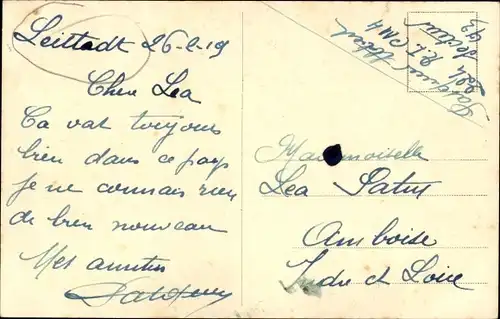 Leittadt 26-2-19
Cher Lea
Ca vat toujours
bien dans ce pays
je ne connais rien
de bien nouveau
Mes amities
204 R.I. CM4
Secteur 92
Mademoiselle
Lea Patus
Amboise
Indre et Loire